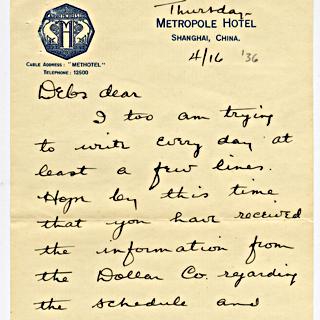 Thursday
METROPOLE HOTEL
SHANGHAI, CHINA.
CABLE ADDRESS: "METHOTEL"
TELEPHONE: 12500
4/16 '36
Debs dear
I too am trying
to write every day at
least a few lines.
Hope by this time
that you have received
the information from
the Dollar Co. regarding
the schedule and